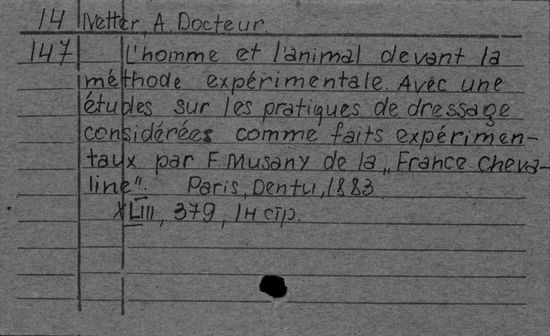 14 Netter, A. Docteur.
147 L'homme et l'animal devant la
méthode expérimentale. Avec une
études sur les pratiques de dressage
considérées comme faits expérimen-
taux par F. Musany de la „France cheva-
line". Paris, Dentu, 1883.
XLIII, 379, 1н стр.